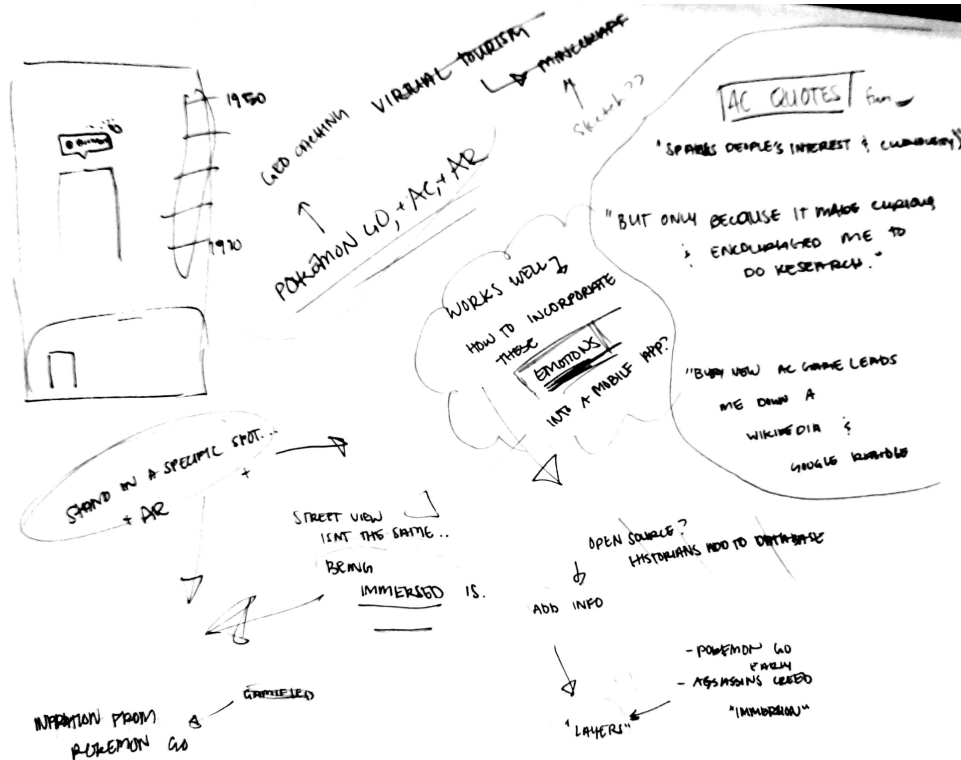 1950
1920
GEO CACHING
VIRTUAL TOURISM
MINECRAFT
SKETCH??
POKÉMON GO, + AC, + AR
AC QUOTES
"SPARKS PEOPLE'S INTEREST & CURIOSITY"
"BUT ONLY BECAUSE IT MADE CURIOUS
& ENCOURAGED ME TO
DO RESEARCH."
"EVERY NEW AC GAME LEADS
ME DOWN A
WIKIPEDIA &
GOOGLE
WORKS WELL
HOW TO INCORPORATE
THESE
EMOTIONS
INTO A MOBILE APP?
STAND IN A SPECIFIC SPOT...
+ AR
+
STREET VIEW
ISNT THE SAME..
BEING
IMMERSED IS.
OPEN SOURCE?
HISTORIANS ADD TO DATABASE
ADD INFO
- POKEMON GO
- ASSASSINS CREED
"IMMERSION"
"LAYERS"
GAMIFIED
FROM
POKEMON GO